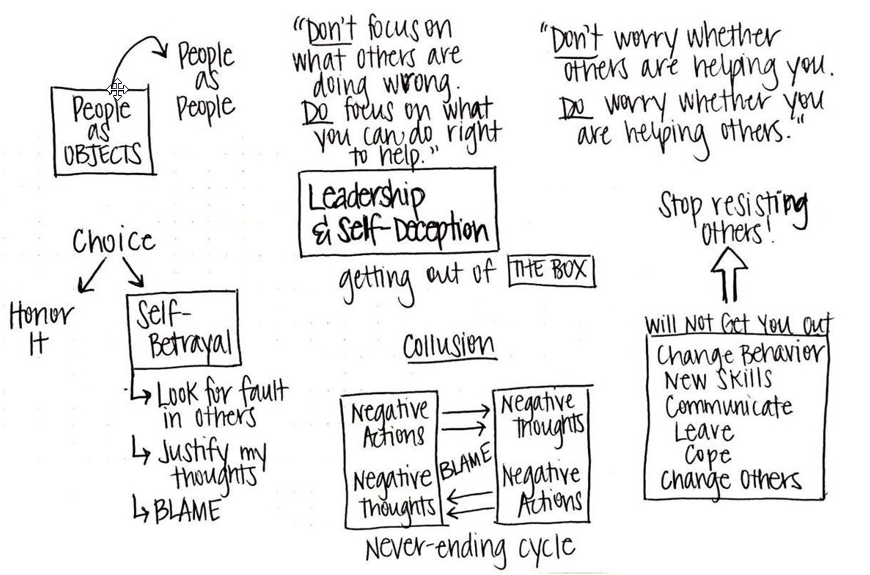 People
as
People
People
as
OBJECTS
"Don't focus on
what others are
doing wrong.
Do focus on what
you can do right
to help."
"Don't worry whether
others are helping you.
Do worry whether you
are helping others."
Leadership
& Self-Deception
getting out of THE BOX
Choice
Honor
It
Self-
Betrayal
Look for fault
in others
Justify my
thoughts
BLAME
Collusion
Negative
Actions
Negative
Thoughts
BLAME
Negative
Thoughts
Negative
Actions
Never-ending cycle
Stop resisting
others!
Will Not Get You Out
Change Behavior
New Skills
Communicate
Leave
Cope
Change Others